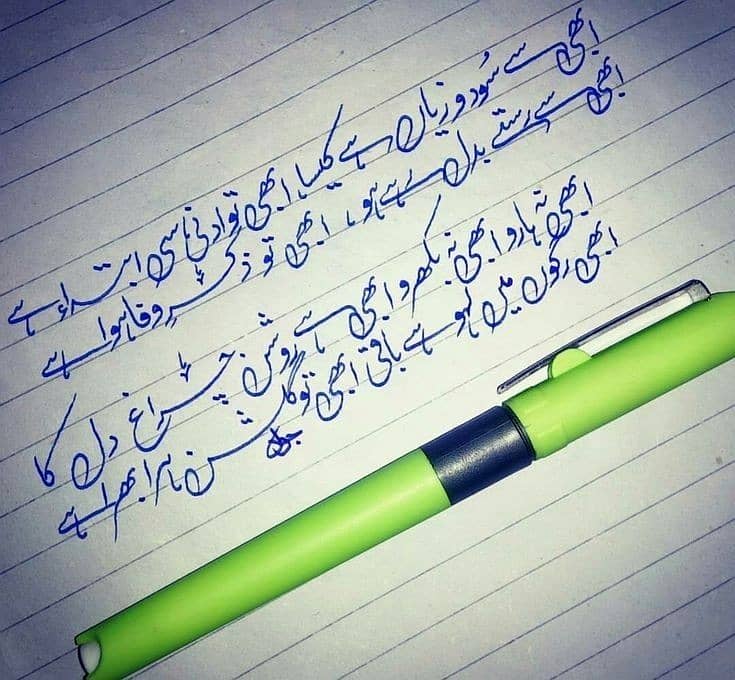 ابھی سے سُود و زیاں ہے کیسا، ابھی تو ادنیٰ سی ابتداء ہے
ابھی سے رستے بدل رہے ہو، ابھی تو ذکرِ وفا ہوا ہے
ابھی نہ ہارو ابھی نہ بکھرو ابھی ہے روشن چراغ دل کا
ابھی رگوں میں لہو ہے باقی ابھی تو گلشن ہرا بھرا ہے